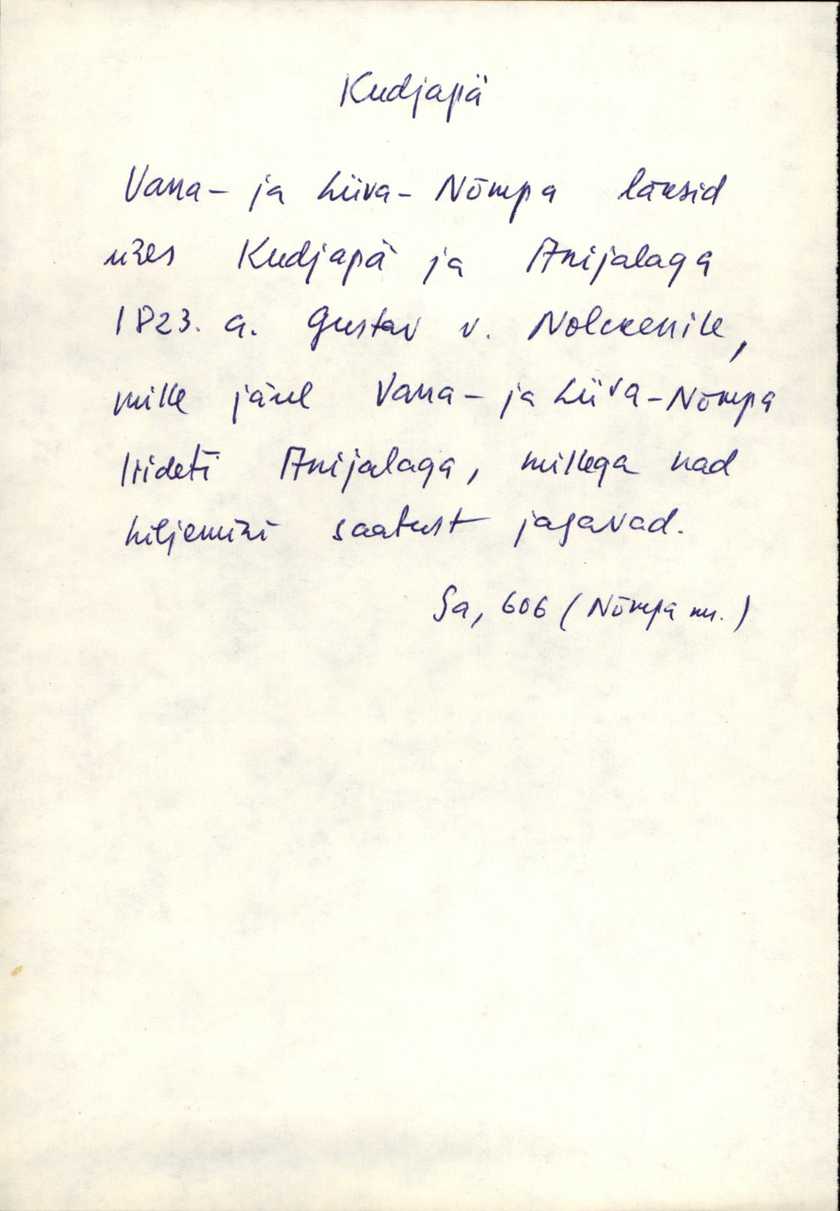 Kudjapä
Vana- ja Liiva- Nõmpa läksid
ühes Kudjapä ja Anijalaga
1823. a. Gustav v. Nolckenile,
mille järel Vana- ja Liiva-Nõmpa
liideti Anijalaga, millega nad
hiljemini saatust jagavad.
Sa, 606 (Nõmpa m.)